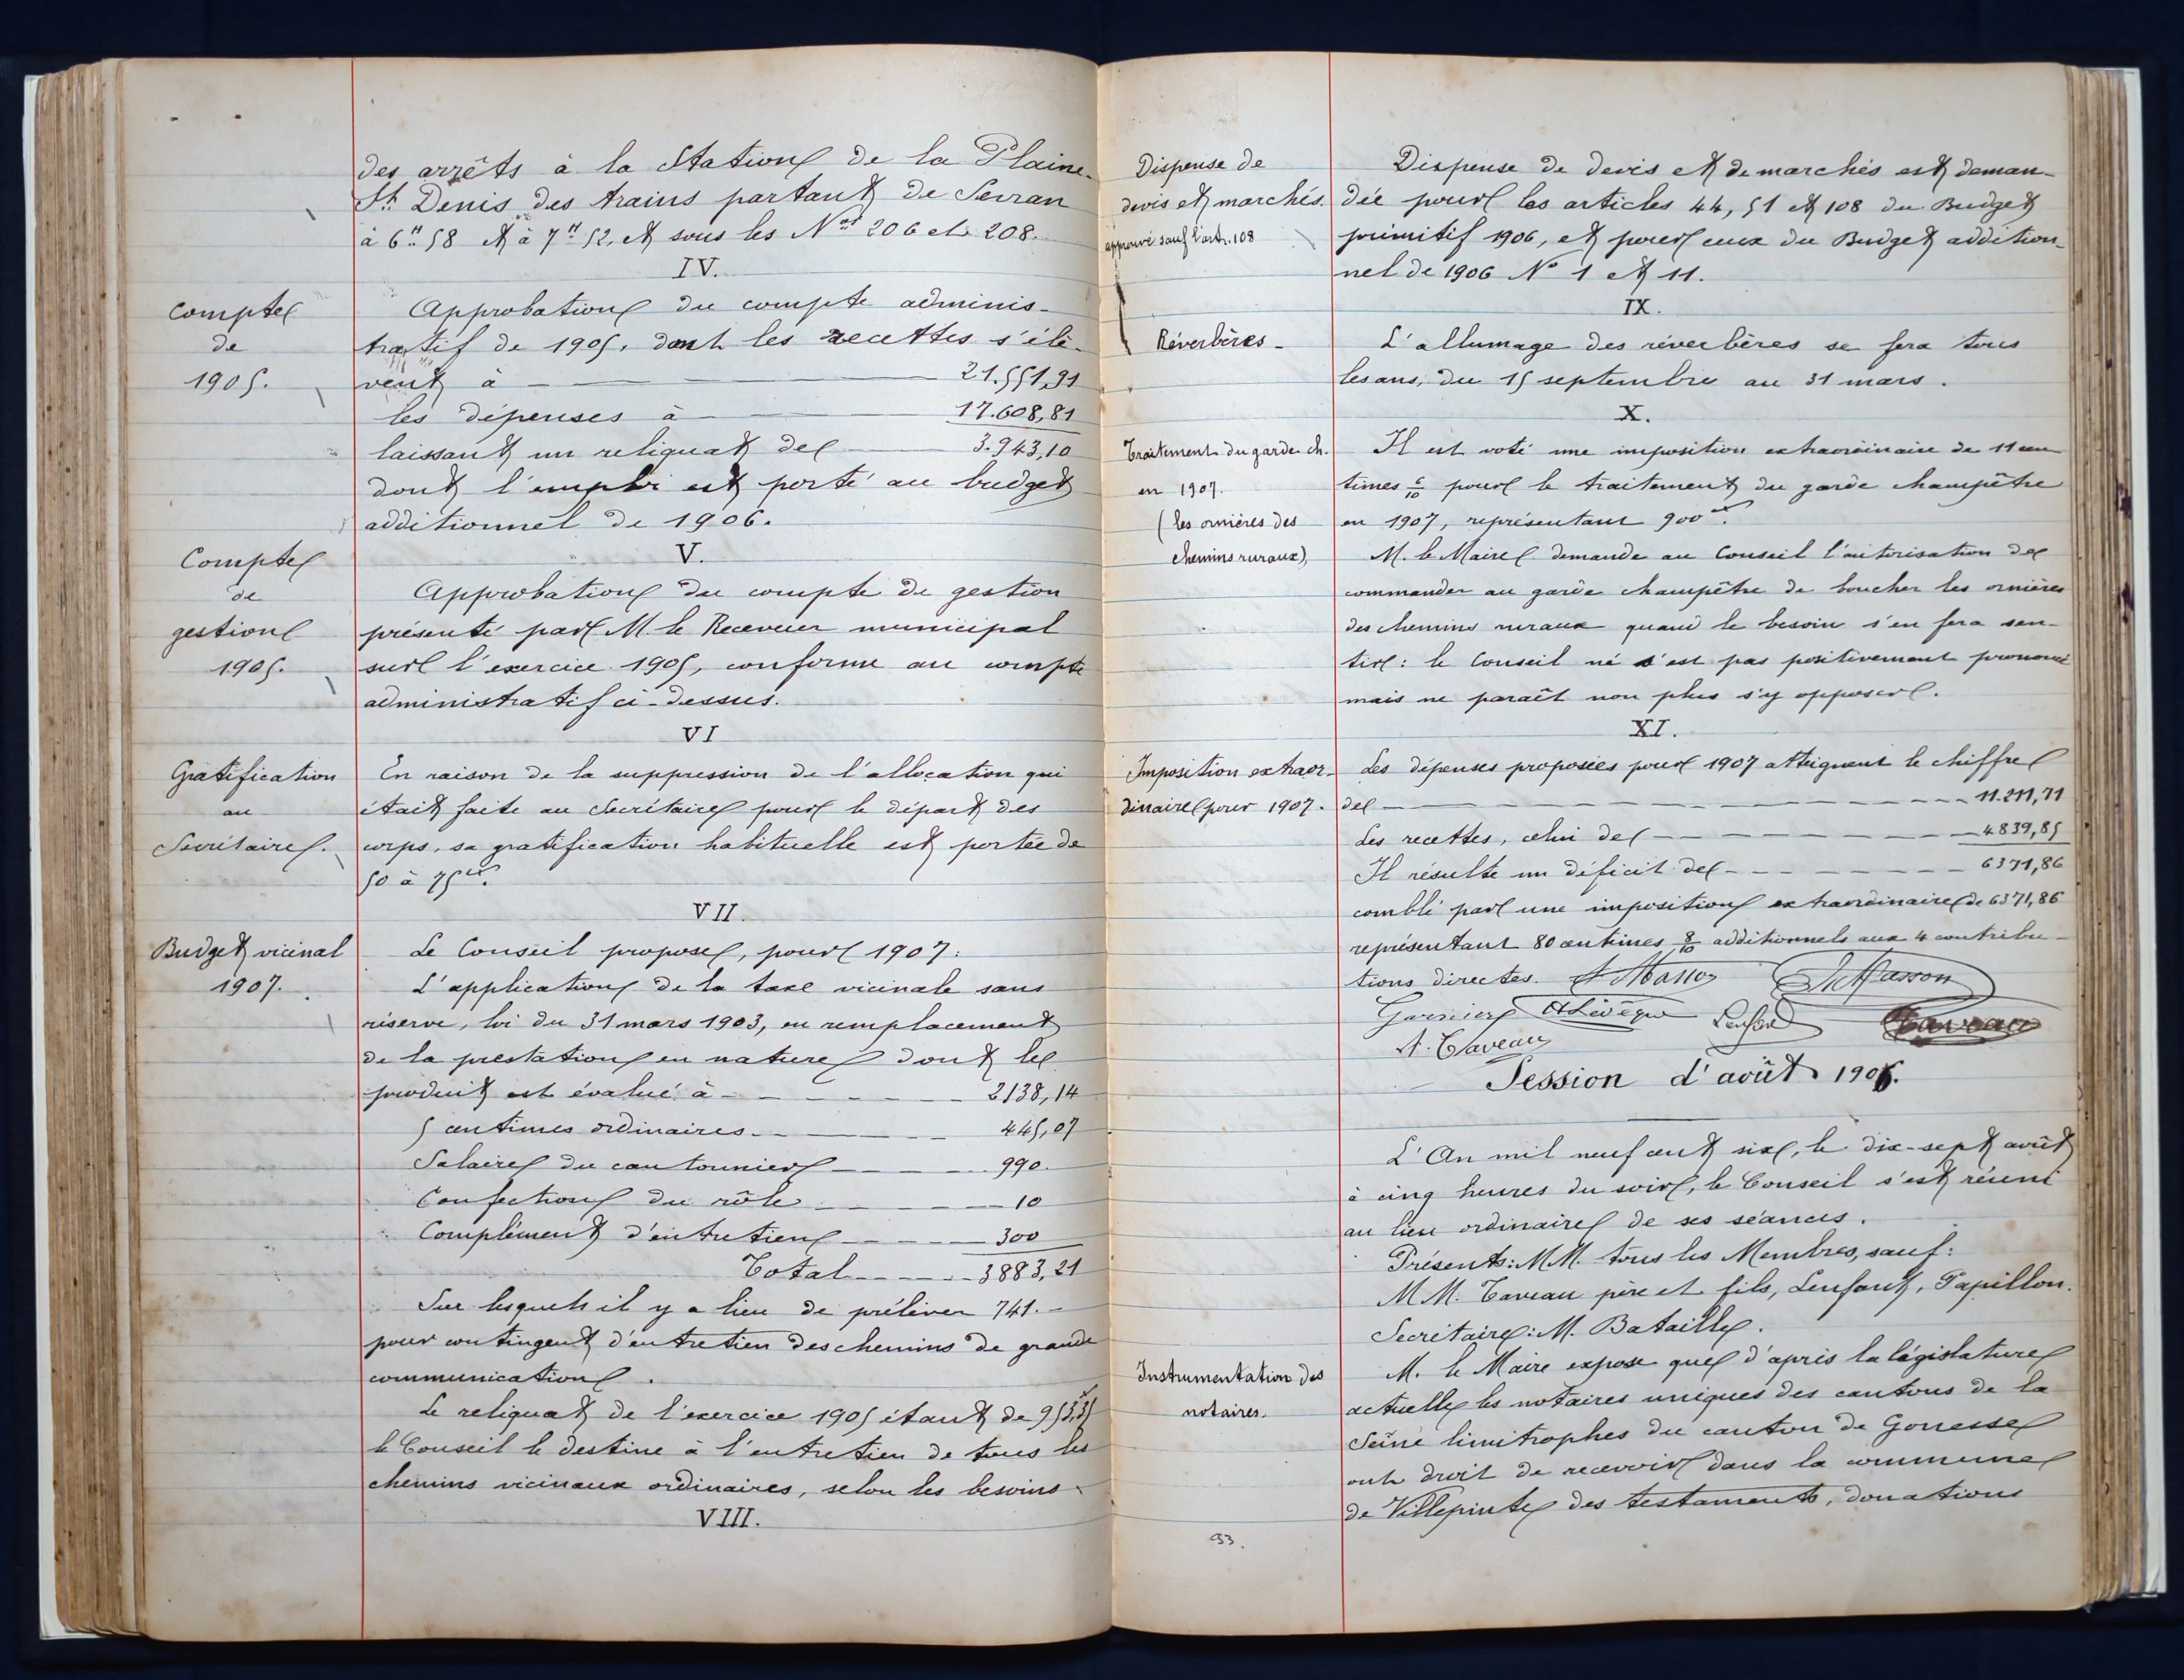 des arrêts à la Station de la Plaine-
St. Denis des trains partant de Sevran
à 6h 58 et à 7h 52, et sous les Nos 206 et 208.
IV.
Compte
de
1905.
Approbation du compte adminis-
tratif de 1905, dont les recettes s'élè-
vent à — 21.551,91
les dépenses à — 17.608,81
laissant un reliquat de — 3.943,10
dont l'emploi est porté au budget
additionnel de 1906.
V.
Compte
de
gestion
1905.
Approbation du compte de gestion
présenté par M. le Receveur municipal
sur l'exercice 1905, conforme au compte
administratif ci-dessus.
VI
Gratification
au
Secrétaire.
En raison de la suppression de l'allocation qui
était faite au Secrétaire pour le départ des
corps, sa gratification habituelle est portée de
50 à 75 fr.
VII.
Budget vicinal
1907.
Le Conseil propose, pour 1907:
L'application de la taxe vicinale sans
réserve, loi du 31 mars 1903, en remplacement
de la prestation en nature dont le
produit est évalué à - - - 2138,14
5 centimes ordinaires - - - 445,07
Salaire du cantonnier - - - 990.
Confection du rôle - - - 10
Complément d'entretien - - - 300
Total - - - 3883,21
Sur lesquels il y a lieu de prélever 741.-
pour contingent d'entretien des chemins de grande
communication.
Le reliquat de l'exercice 1905 étant de 953,35
le Conseil le destine à l'entretien de tous les
chemins vicinaux ordinaires, selon les besoins.
VIII.
Dispense de
devis et marchés.
approuvé sauf l'art. 108
Dispense de devis et de marchés est deman-
dée pour les articles 44, 51 et 108 du Budget
primitif 1906, et pour ceux du Budget addition-
nel de 1906 No 1 et 11.
IX.
Réverbères -
L'allumage des réverbères se fera tous
les ans, du 15 septembre au 31 mars.
X.
Traitement du garde ch.
en 1907.
(les ornières des
chemins ruraux)
Il est voté une imposition extraordinaire de 11 cen
times 6/10 pour le traitement du garde champêtre
en 1907, représentant 900 fr.
M. le Maire demande au Conseil l'autorisation de
commander au garde champêtre de boucher les ornières
des chemins ruraux quand le besoin s'en fera sen-
tir: le Conseil ne s'est pas positivement prononcé
mais ne paraît non plus s'y opposer.
XI.
Imposition extraor-
dinaire pour 1907.
Les dépenses proposées pour 1907 atteignent le chiffre
de - - - 11.211,71
Les recettes, celui de - - - 4839,85
Il résulte un déficit de - - - 6371,86
comblé par une imposition extraordinaire de 6371,86
représentant 80 centimes 8/10 additionnels aux 4 contribu-
tions directes. Masson
Masson
Garnier A Lévêque Lenfant Taveau
A. Taveau
Session d'août 1906.
L'An mil neuf cent six, le dix-sept août
à cinq heures du soir, le Conseil s'est réuni
au lieu ordinaire de ses séances.
Présents: MM. tous les Membres, sauf:
MM. Taveau père et fils, Lenfant, Papillon.
Secrétaire: M. Bataille.
Instrumentation des
notaires.
M. le Maire expose que d'après la législature
actuelle les notaires uniques des cantons de la
Seine limitrophes du canton de Gonesse
ont droit de recevoir dans la commune
de Villepinte des testaments, donations
93.